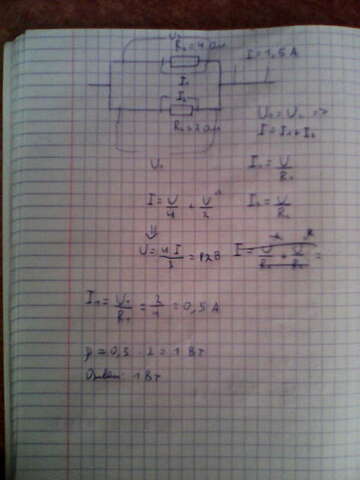 R₁=4 Ом
I=1,5 А
I₁
I₂
R₂=2 Ом
U₁=U₂ =>
I=I₁+I₂
U₁
I₁=U/R₁
I=U/4+U/2
I₂=U/R₂
U=4I/3=
I=U/R₁+U/R₂=
I₁=U₁/R₁=2/4=0,5 А
p=0,5·2=1 Вт
Ответ: 1 Вт